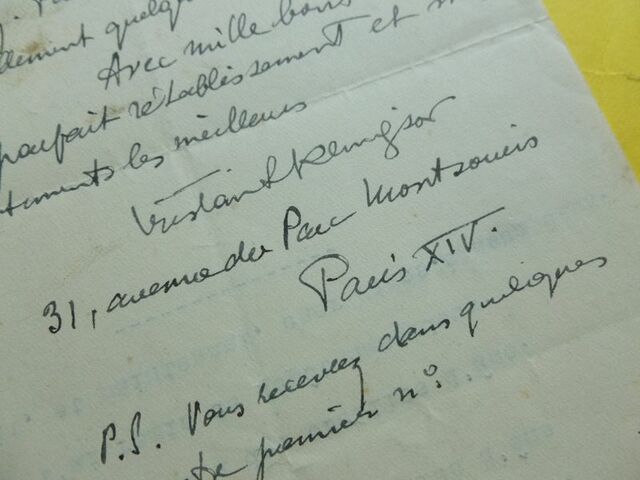 dement quelqu
Avec mille bons
parfait rétablissement et m
timents les meilleurs
Tristan Klingsor
31, avenue du Parc Montsouris
Paris XIV.
P.S. Vous recevrez dans quelques
tre premier n°